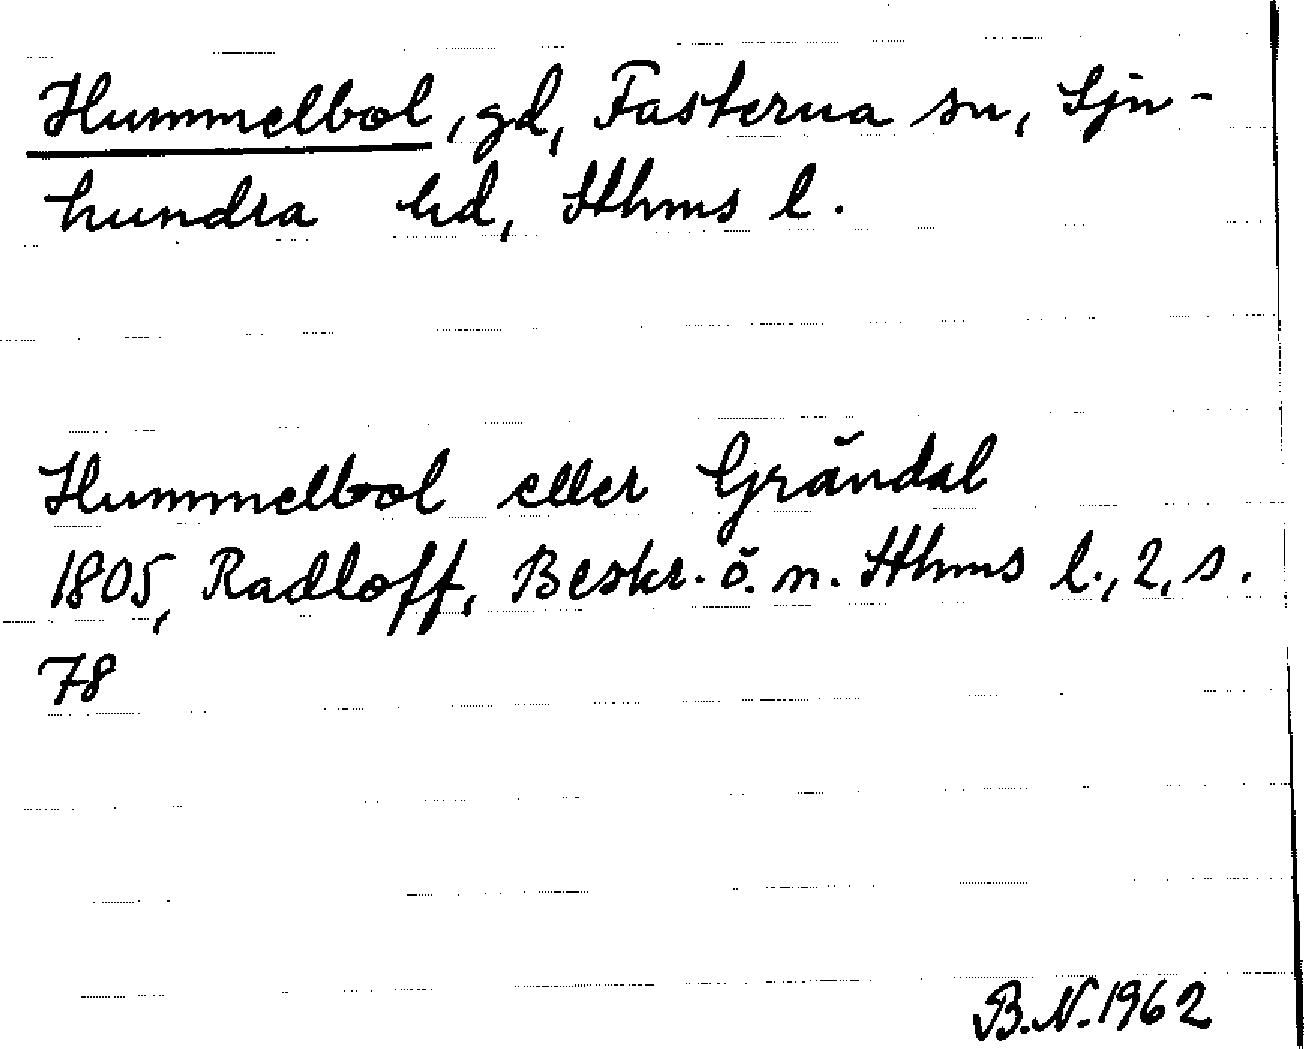 Hummelbol, gd, Fasterna sn, Sju-
hundra hd, Sthms l.
Hummelbol eller Grändal
1805, Radloff, Beskr. ö. n. Sthms l., 2, s.
78
B.N. 1962